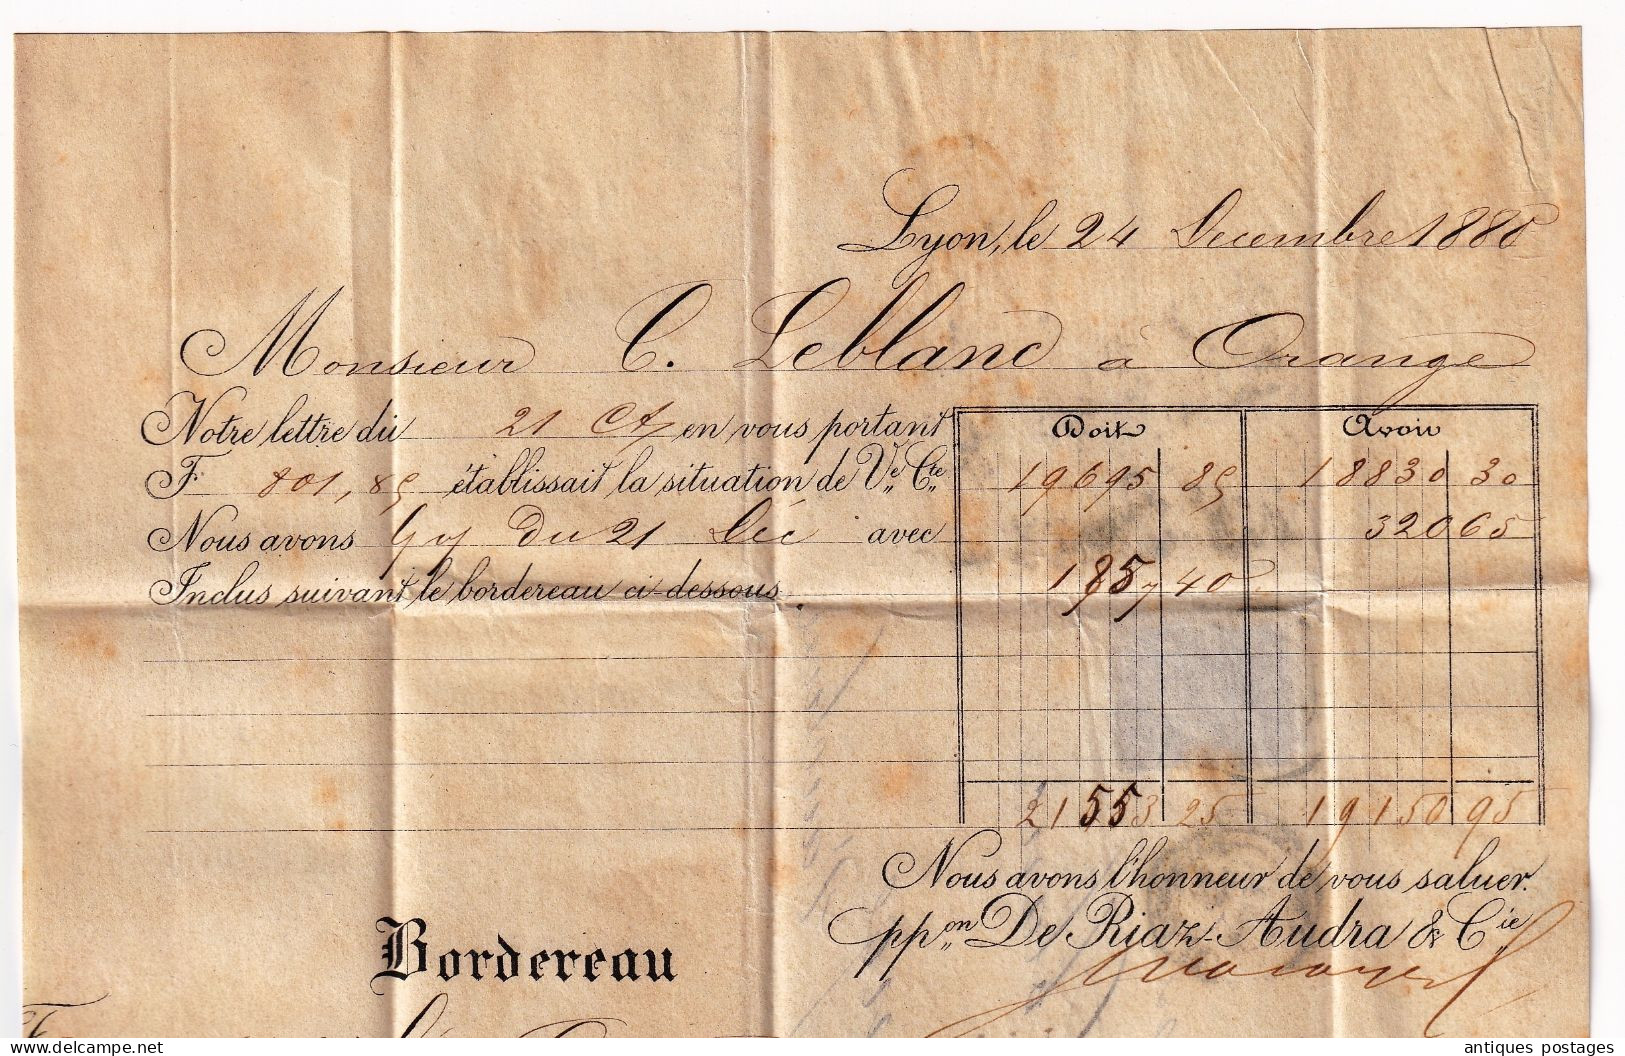 Lyon, le 24 Decembre 1880
Monsieur C. Leblanc à Orange
Notre lettre du 21 Ct en vous portant
F 801,85 établissait la situation de Ve Cte
Nous avons du 21 Déc avec
Inclus suivant le bordereau ci-dessous
Doit Avoir
19695 85 18830 30
320 65
1857 40
21553 25 19150 95
Nous avons l'honneur de vous saluer.
ppon De Riaz-Audra & Cie
Bordereau
antiques postages
delcampe.net